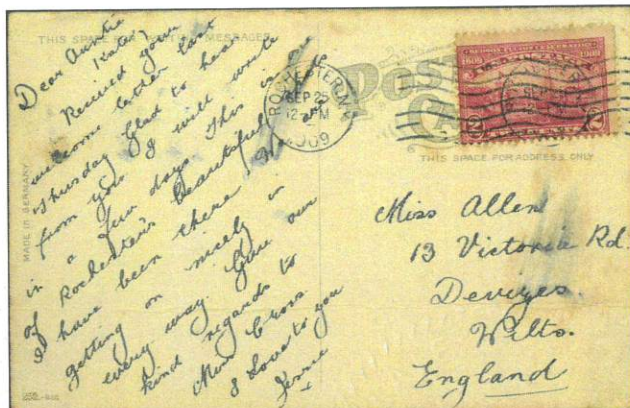 THIS SPACE FOR MESSAGES
Dear Auntie
Kate
Recived your
welcome letter last
Thursday Glad to hear
from you I will write
in a few days. This is one
of Rochester's beautiful
I have been there
getting on nicely in
every way Give our
kind regards to
Miss Cross
& Love to you
Jennie
x
MADE IN GERMANY
ROCHESTER, N.Y.
SEP 25
12 PM
1909
POST CARD
1809
1909
2
2
THIS SPACE FOR ADDRESS ONLY
Miss Allen
13 Victoria Rd.
Devizes.
Wilts.
England